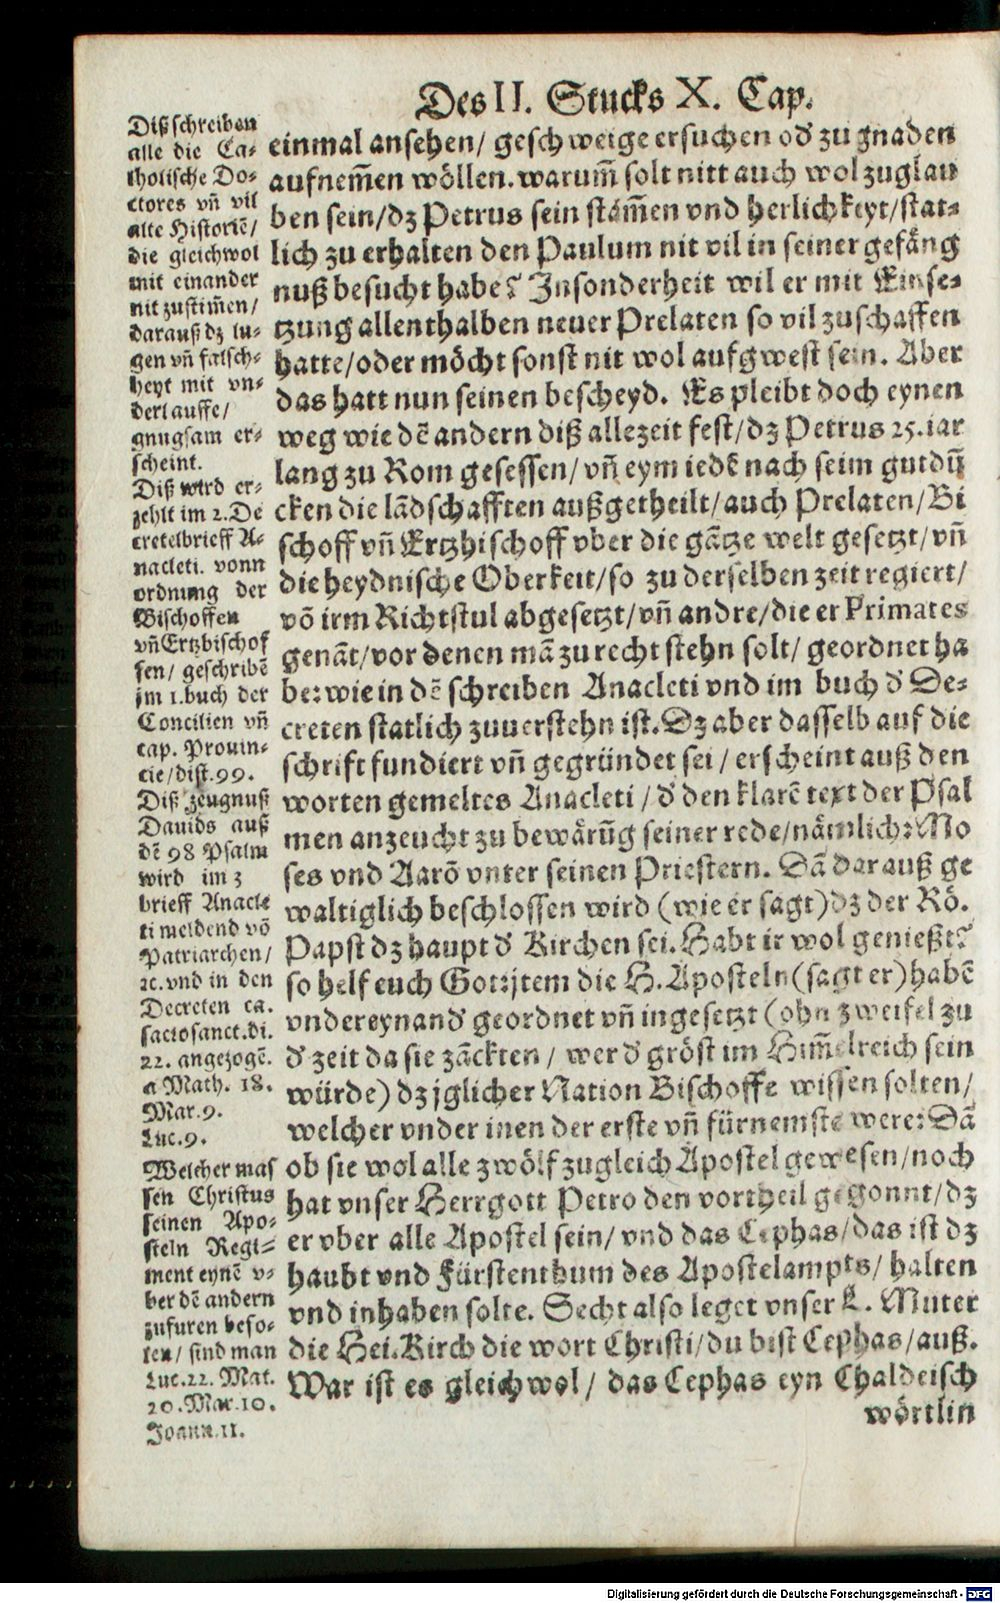 Des II. Stucks X. Cap.
Diß schreiben
alle die Ca-
tholische Do-
ctores vñ vil
alte Historiẽ/
die gleichwol
mit einander
nit zustim̃en/
darauß dz lu-
gen vñ falsch-
heyt mit vn-
derlauffe/
gnugsam er-
scheint.
Diß wird er-
zehlt im 2. De
cretelbrieff A-
nacleti. vonn
ordnung der
Bischoffen
vñ Ertzbischof
fen/ geschribẽ
im 1. buch der
Concilien vñ
cap. Prouin-
cie/dist. 99.
Diß zeugnuß
Dauids auß
dẽ 98 Psalm
wird im 3
brieff Anacle
ti meldend võ
Patriarchen/
ꝛc. vnd in den
Decreten ca.
sacrosanct. di.
22. angezogẽ.
a Math. 18.
Mar. 9.
Luc. 9.
Welcher mas
sen Christus
seinen Apo-
steln Regi-
ment eynẽ v-
ber dẽ andern
zufuren befo-
len/ sind man
Luc. 22. Mat.
20. Mar. 10.
Joann. 11.
einmal ansehen/ geschweige ersuchen od' zu gnaden
aufnem̃en wöllen. warum̃ solt nitt auch wol zuglau
ben sein/ dz Petrus sein stäm̃en vnd herlichkeyt/ stat-
lich zu erhalten den Paulum nit vil in seiner gefäng
nuß besucht habe? Insonderheit wil er mit Einse-
tzung allenthalben neuer Prelaten so vil zuschaffen
hatte/ oder möcht sonst nit wol auf gwest sein. Aber
das hatt nun seinen bescheyd. Es pleibt doch eynen
weg wie dẽ andern diß allezeit fest/ dz Petrus 25. iar
lang zu Rom gesessen/ vñ eym iedẽ nach seim gutdũ
cken die lãdschafften außgetheilt/ auch Prelaten/ Bi
schoff vñ Ertzbischoff vber die gãtze welt gesetzt/ vñ
die heydnische Oberkeit/ so zu derselben zeit regiert/
võ irm Richtstul abgesetzt/ vñ andre/ die er Primates
genãt/ vor denen mã zu recht stehn solt/ geordnet ha
be: wie in dẽ schreiben Anacleti vnd im buch d' De-
creten statlich zuuerstehn ist. Dz aber dasselb auf die
schrift fundiert vñ gegründet sei/ erscheint auß den
worten gemeltes Anacleti/ d' den klarẽ text der Psal
men anzeucht zu bewärũg seiner rede/ nämlich: Mo
ses vnd Aarõ vnter seinen Priestern. Dã darauß ge
waltiglich beschlossen wird (wie er sagt) dz der Rö.
Papst dz haupt d' Kirchen sei. Habt ir wol genießt?
so helf euch Got: jtem die H. Aposteln (sagt er) habẽ
vndereynand' geordnet vñ ingesetzt (ohn zweifel zu
d' zeit da sie zãckten/ wer d' gröst im Him̃elreich sein
würde) dz jglicher Nation Bischoffe wissen solten/
welcher vnder inen der erste vñ fürnemste were: Dã
ob sie wol alle zwölf zugleich Apostel gewesen/ noch
hat vnser Herrgott Petro den vortheil gegonnt/ dz
er vber alle Apostel sein/ vnd das Cephas/ das ist dz
haubt vnd Fürstenthum des Apostelampts/ halten
vnd inhaben solte. Secht also leget vnser L. Muter
die Hei. Kirch die wort Christi/ du bist Cephas/ auß.
War ist es gleichwol/ das Cephas eyn Chaldeisch
wörtlin
Digitalisierung gefördert durch die Deutsche Forschungsgemeinschaft - DFG